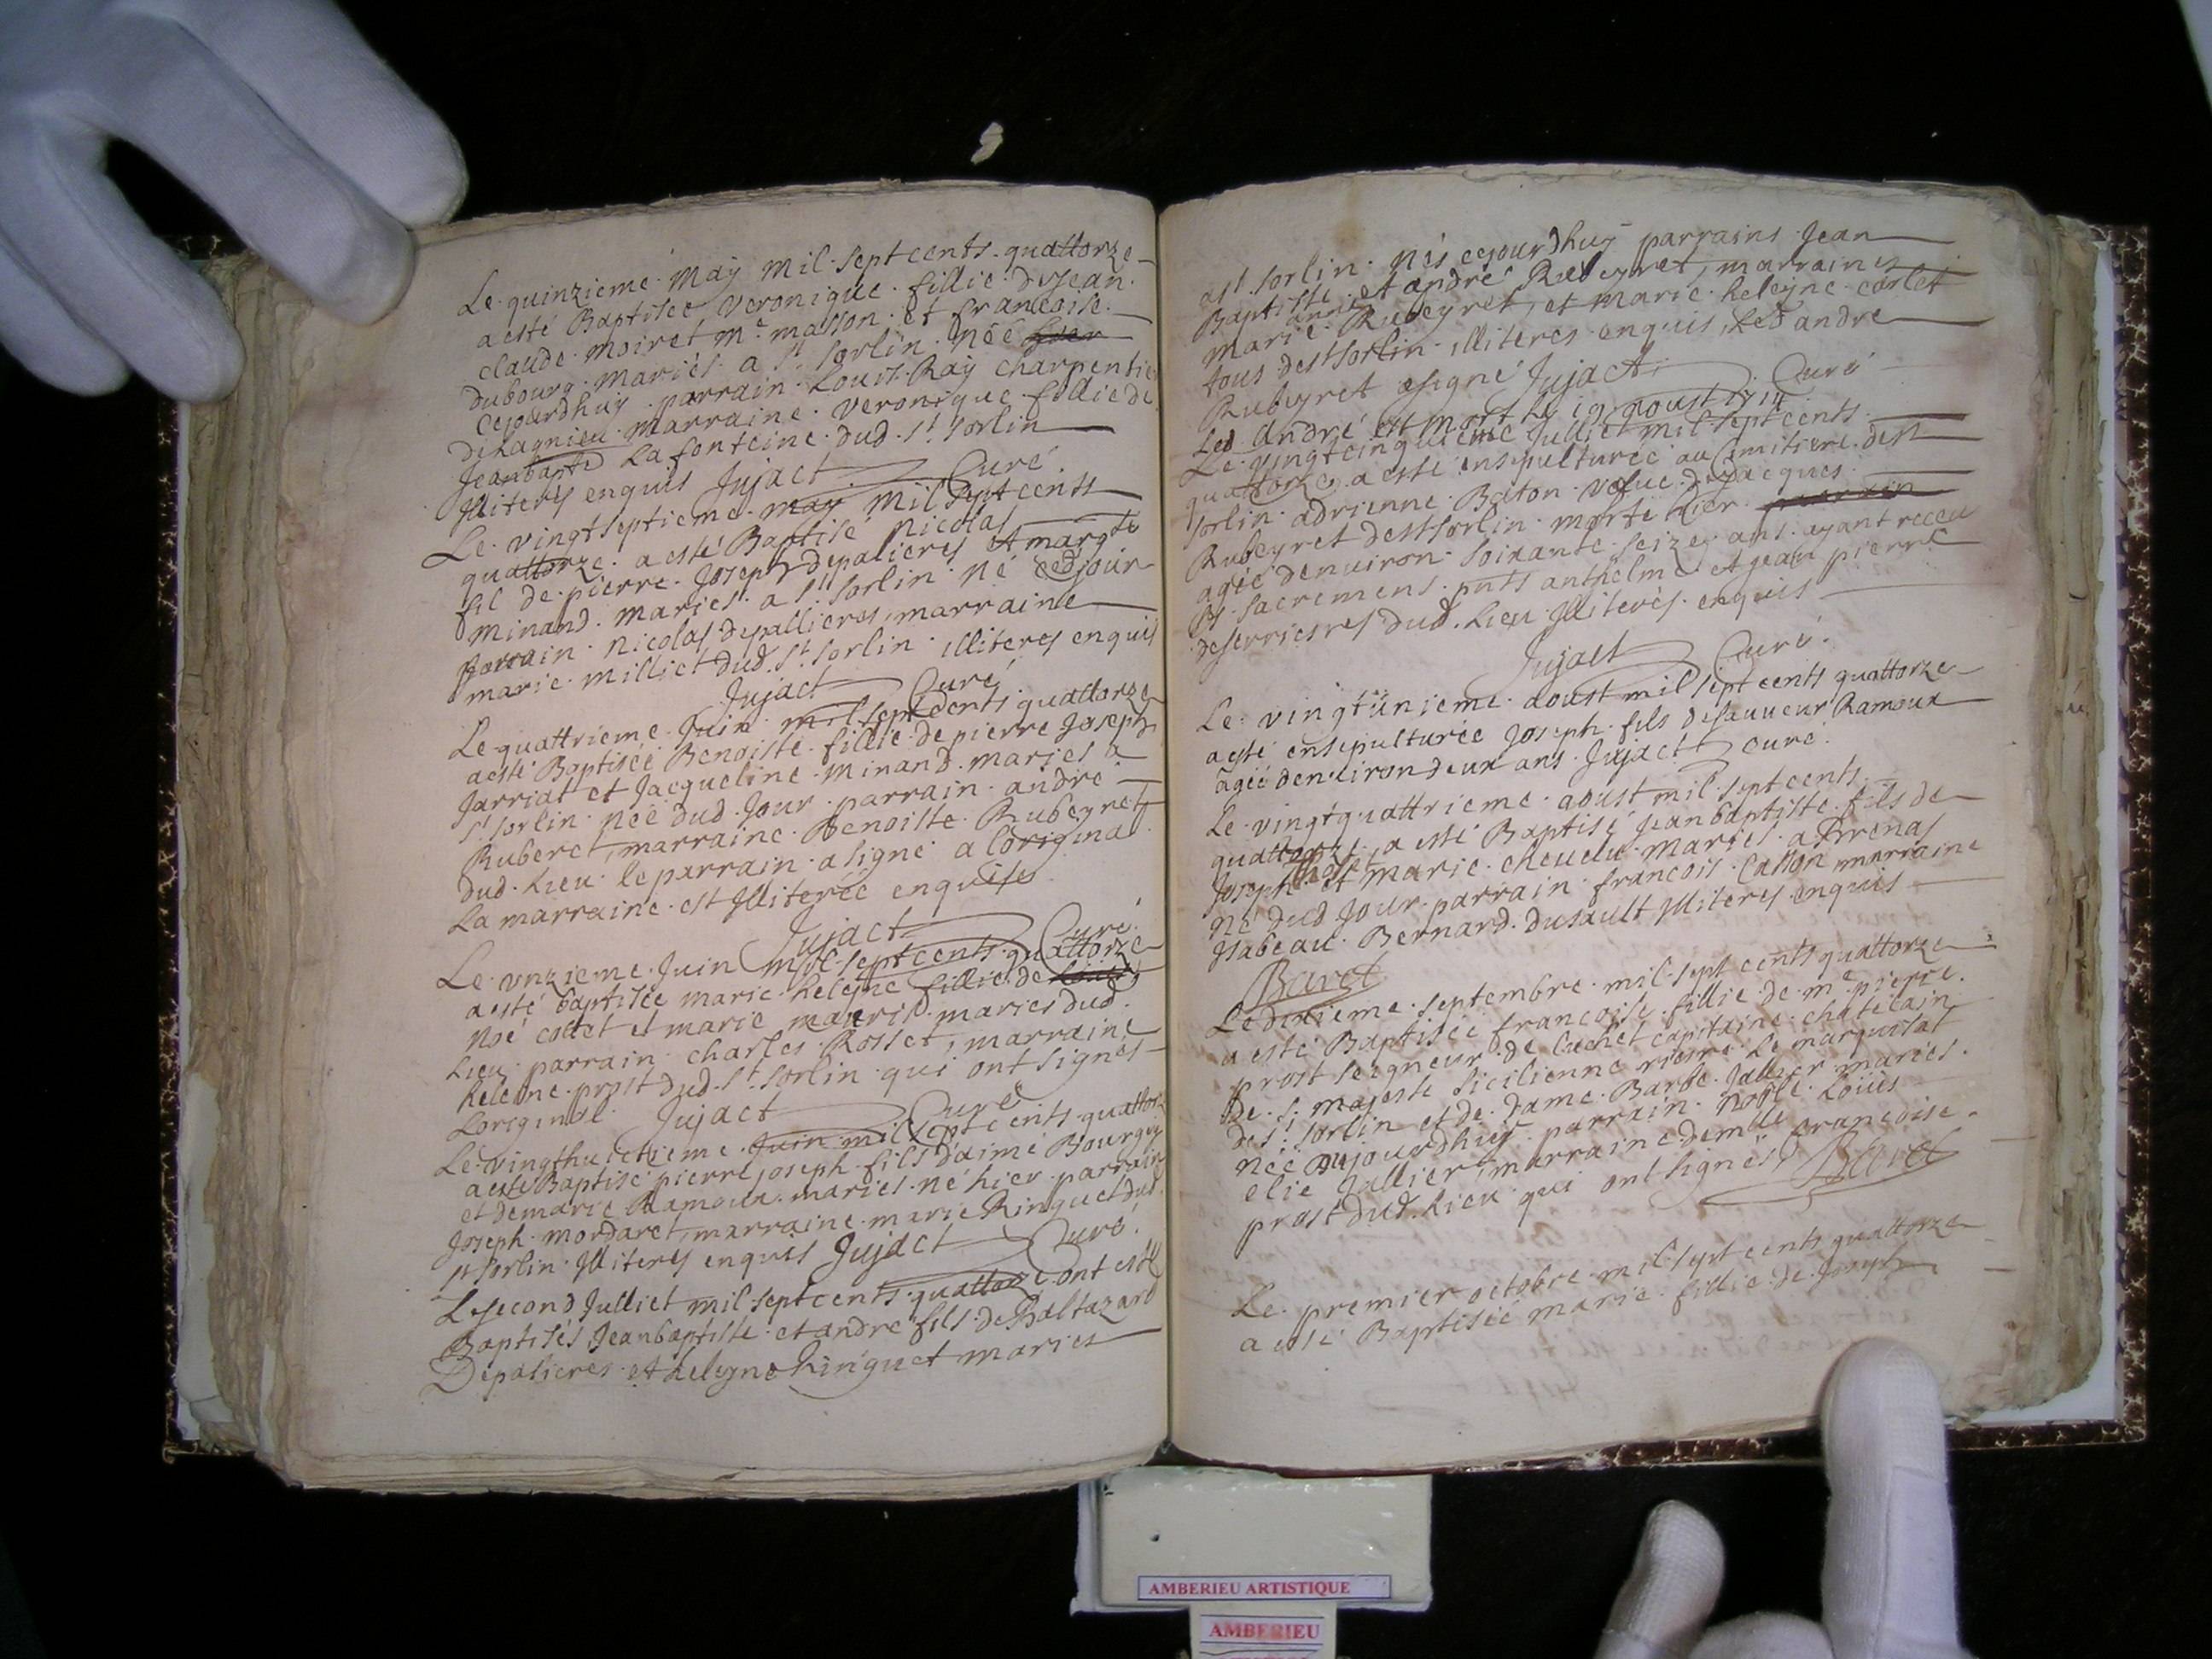 Le quinzieme May mil sept cents quattorze
a esté Baptisée Veronique fillie de Jean
claude moiret Me masson et francoise
dubourg mariés a St Sorlin née hier
cejourdhuy parrain Louis Ray charpentie
de Lagnieu marraine Veronique fillie de
La fonteine dud. St Sorlin
Illiterés enquis Jujact Curé
Le vingt septieme may mil sept cents
quattorze a esté Baptisé Nicolas
fil de pierre Joseph depalieres et margte
minand mariés a St Sorlin né ced jour
parrain Nicolas depallieres, marraine
marie milliet dud. St Sorlin illiteres enquis
Jujact Curé
Le quattrieme Juin mil sept cents quattorze
a esté Baptisée Benoiste fillie de pierre Joseph
Jarriat et Jacqueline minand mariés a
St Sorlin née dud. Jour parrain andré
Ruberet, marraine Benoiste Rubeyret
dud. Lieu le parrain a signé a Loriginal
La marraine est Illiterée enquise
Jujact Curé
Le unzieme Juin mil sept cents quattorze
a esté baptisée marie heleyne fillie de
Noé collet et marie mariés dud.
Lieu parrain charles Rosset, marraine
heleyne prost dud. St Sorlin qui ont signés
Loriginal Jujact Curé
Le vingthuictieme Juin mil sept cents quattorz
a esté Baptisé pierre joseph fils d'aimé Bourguy
et de marie Ramoux mariés né hier parrain
Joseph mordaret, marraine marie Ringuet dud.
St Sorlin Illiterés enquis Jujact Curé
Le second Julliet mil sept cents quattorze ont esté
Baptisés Jeanbaptiste et andré fils de Baltazard
Depalieres et heleyne Ringuet mariés
a St Sorlin nés cejourdhuy parrains Jean
Baptiste et andré Rubeyret, marraines
marie Rubeyret, et marie heleyne corlet
tous de St Sorlin illiteres enquis, Led andre
Rubeyret a signé Jujact Curé
Led André est mort le 19 aoust 1714
Le vingtcinquieme Julliet mil sept cents
quattorze a esté ensepulturée au Cimitiere de St
Sorlin adrienne Baton vefue de Jacques
Rubeyret de St Sorlin morte hier
agée denuiron soixante seize ans ayant receu
les sacremens pnts anthelme et jean pierre
deserrieres dud. Lieu Illiterés enquis
Jujact Curé
Le vingtunieme aoust mil sept cents quattorze
a esté ensepulturée Joseph fils de sauueur Ramoux
agée denuiron deux ans Jujact Curé
Le vingtquattrieme aoust mil sept cents
quattorze, a esté Baptisé Jeanbaptiste fils de
Joseph et marie cheuelu mariés a Brenas
né dud Jour parrain francois Casson marraine
Isabeau Bernard Dusault Illiterés enquis
Baret
Le dixieme septembre mil sept cents quattorze
a esté Baptisée francoise fillie de me pierre
prost seigneur de Cuchet capitaine chatelain
de s. majesté Sicilienne riere Le marquisat
de St Sorlin et de dame Barbe Jallier mariés
née aujourdhuy parrain Noble Loüis
elie Jallier, marraine demlle francoise
prost dud. Lieu qui ont signés Baret
Le premier octobre mil sept cents quattorze
a esté Baptisée marie fillie de Joseph
AMBERIEU ARTISTIQUE
AMBERIEU